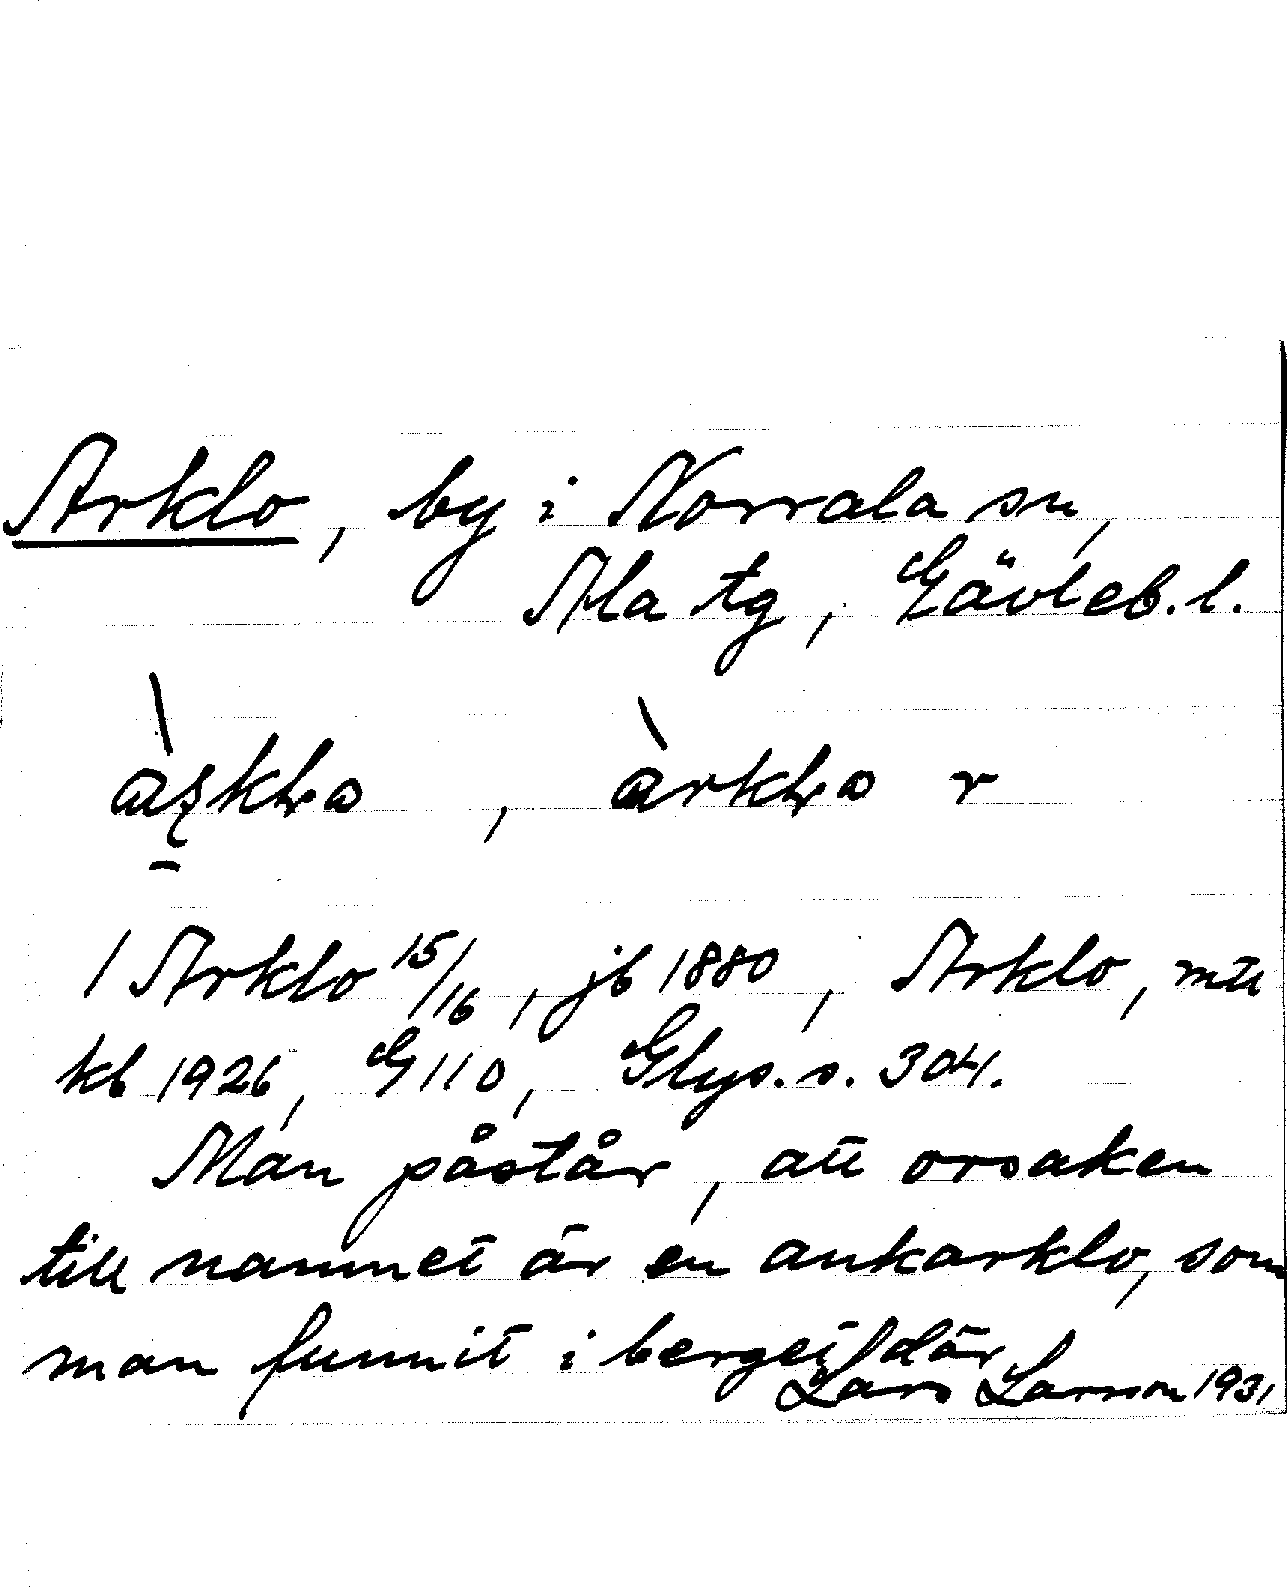 Arklo, by i Norrala sn,
Ala tg, Gävleb. l.
, àrkɫɷ r
1 Arklo 15/16, jb 1880, Arklo, mtl
kb 1926, G 110, Glys. s. 304.
Man påstår, att orsaken
till namnet är en ankarklo, som
man funnit i berget där
Lars Larsson 1931